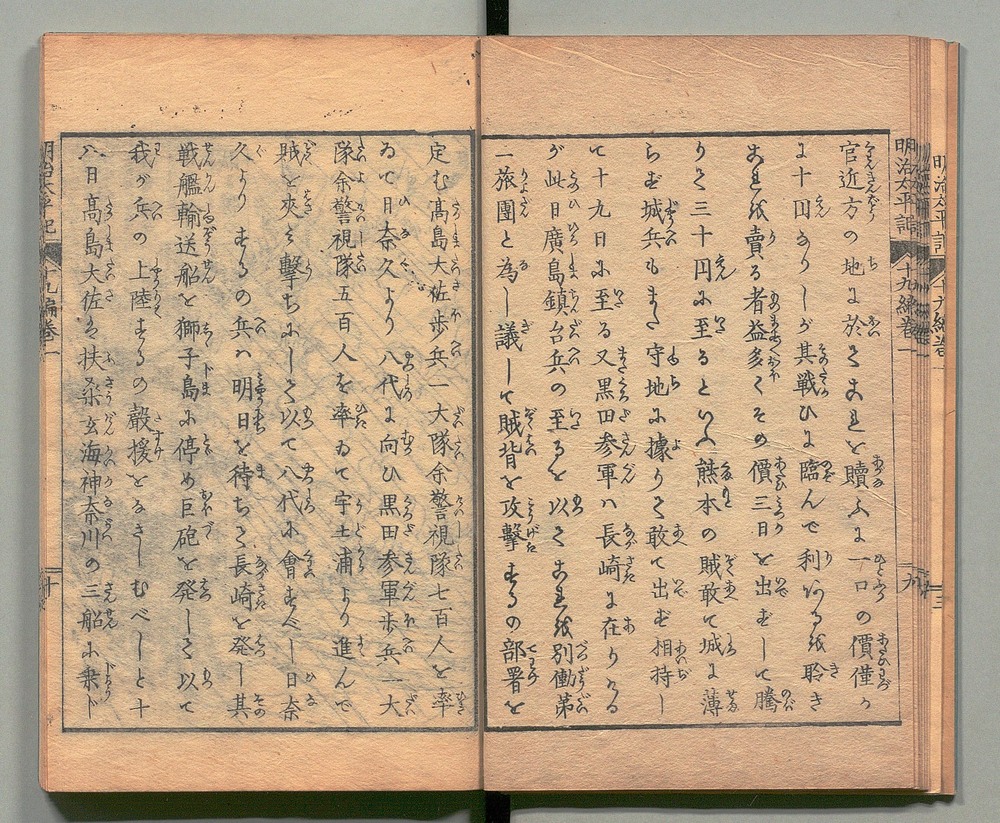 官近方の地に於てこれを贖ふに一口の價僅か
に十円ありしが其戦ひに臨んで利ある我聆き
これ我賣る者益多くその價三日を出ずして騰
りて三十円に至るといふ熊本の賊敢て城に薄
らず城兵もまた守地に據りて敢て出ず相持し
て十九日に至る又黒田参軍ハ長崎に在りける
が此日廣島鎮台兵の至るを以てこれ我別働第
一旅團と為し議して賊背を攻撃するの部署を
定む髙島大佐歩兵一大隊余警視隊七百人を率
ゐて日奈久より八代に向ひ黒田参軍歩兵一大
隊余警視隊五百人を率ゐて宇土浦より進んで
賊を夾み撃ちにして以て八代に會すべし日奈
久よりするの兵ハ明日を待ちて長崎を発し其
戦艦輸送船を獅子島に停め巨砲を発して以て
我が兵の上陸するの聲援をなさしむべしと十
八日髙島大佐は扶桑玄海神奈川の三船に乗し
明治太平記
十九編巻一
九
明治太平記
十九編巻一
十